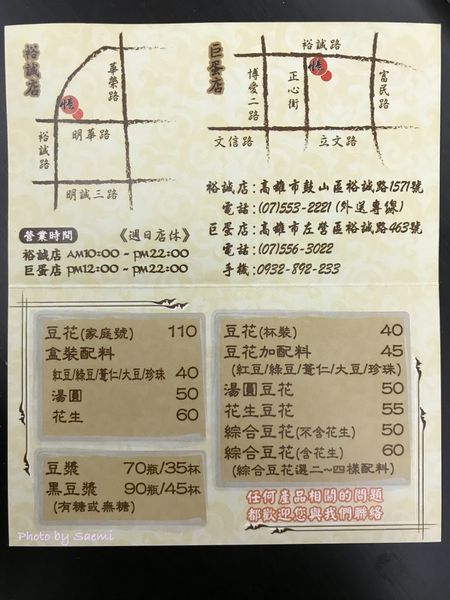 裕誠店
華榮路
裕誠路
明華路
明誠三路
巨蛋店
裕誠路
博愛二路
正心街
富民路
文信路
立文路
裕誠店:高雄市鼓山區裕誠路1571號
電話:(07)553-2221(外送專線)
巨蛋店:高雄市左營區裕誠路463號
電話:(07)556-3022
手機:0932-892-233
營業時間 《週日店休》
裕誠店 AM10:00 ~ PM22:00
巨蛋店 PM12:00 ~ PM22:00
豆花(家庭號) 110
盒裝配料
紅豆/綠豆/薏仁/大豆/珍珠 40
湯圓 50
花生 60
豆漿 70瓶/35杯
黑豆漿 90瓶/45杯
(有糖或無糖)
豆花(杯裝) 40
豆花加配料 45
(紅豆/綠豆/薏仁/大豆/珍珠)
湯圓豆花 50
花生豆花 55
綜合豆花(不含花生) 50
綜合豆花(含花生) 60
(綜合豆花選二~四樣配料)
任何產品相關的問題
都歡迎您與我們聯絡
Photo by Saemi